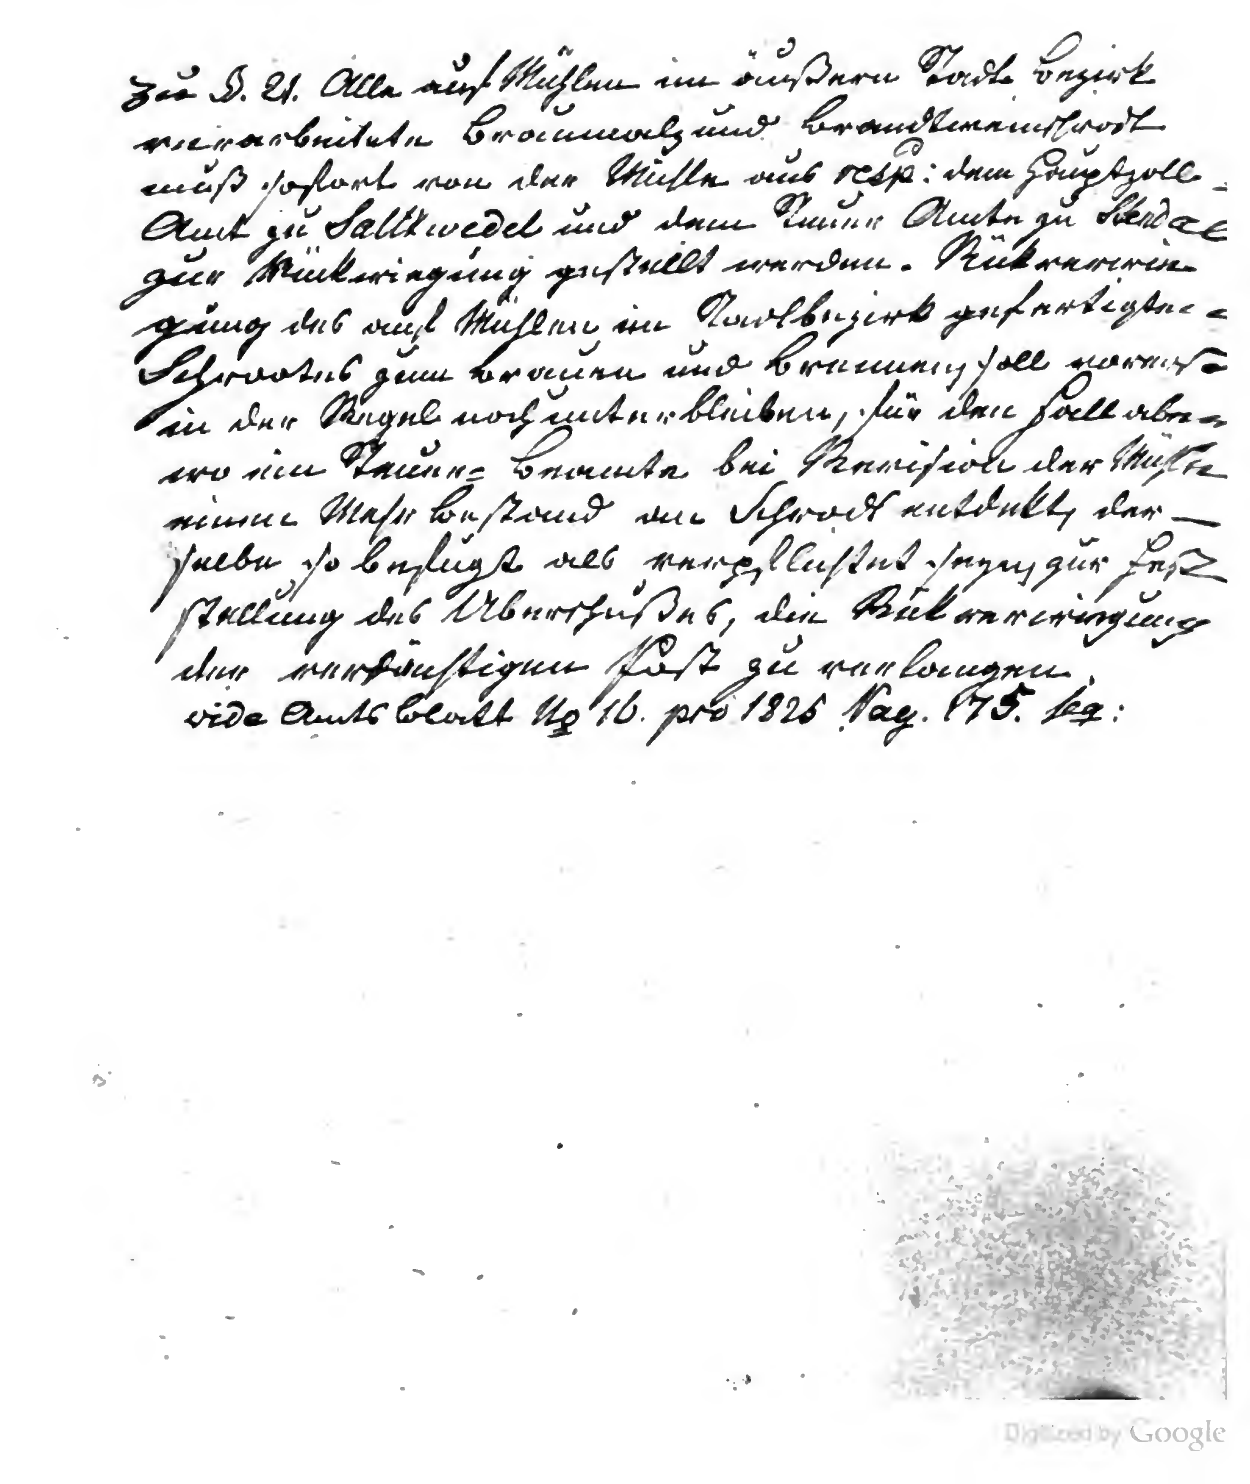 zu S. 21. Alle auf Mühlen im äußern Stadt Bezirk
verarbeitete Braumalz und Brandtweinschrodt
muß sofort von der Mühle aus resp: dem Hauptzoll-
Amt zu Saltzwedel und dem Steuer Amte zu Stendal
zur Rückwiegung gestellt werden. Rükverwie-
gung des auf Mühlen im Stadtbezirk gefertigten
Schrootes zum brauen und brennen, soll vorerst
in der Regel noch unterbleiben, für den Fall aber
wo ein Steuer= Beamte bei Revision der Mühle
einen Mehr Bestand an Schrodt entdekt, der-
selbe so befugt als verpflichtet seyn, zur Fest-
stellung des Uberschußes, die Rükverwiegung
der verdächtigen Post zu verlangen
vide Amts Blatt No 16. pro 1825 Pag. 175. seq:
Digitized by Google